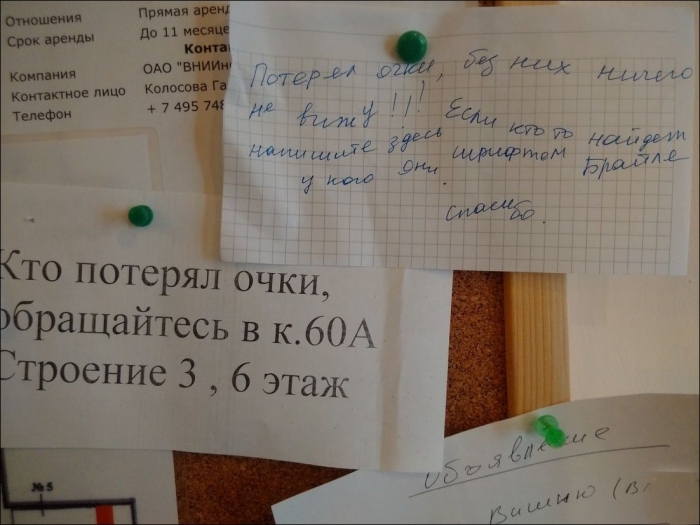 Отношения Прямая аренд
Срок аренды До 11 месяце
Конта
Компания ОАО "ВНИИн
Контактное лицо Колосова Га
Телефон + 7 495 748
Потерял очки, без них ничего
не вижу!!! Если кто то найдет
напишите здесь шрифтом Брайле
у кого они.
спасибо.
Кто потерял очки,
обращайтесь в к.60А
Строение 3 , 6 этаж
Объявление
Вишню (Вл
№5